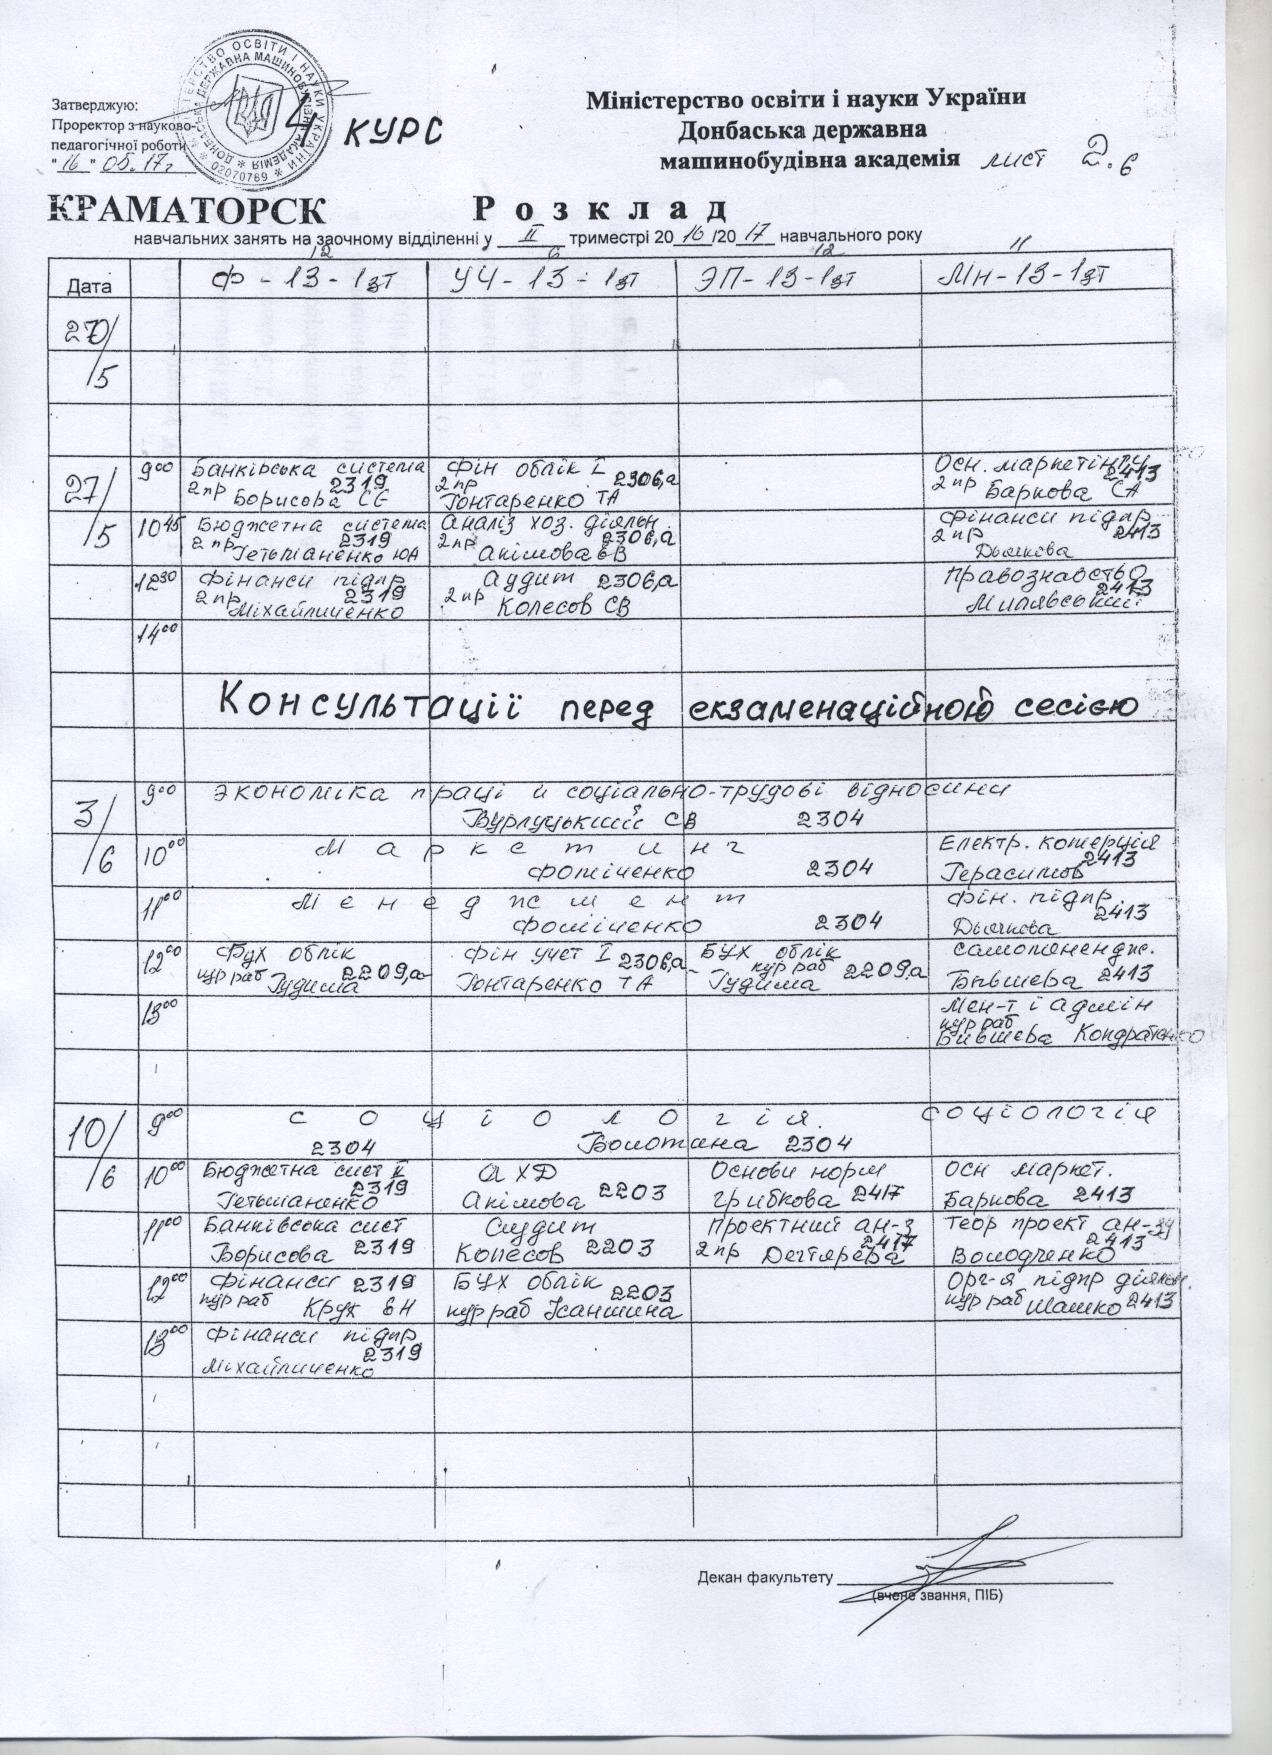 Затверджую:
Проректор з науково-
педагогічної роботи
"16" 05.17г
4 КУРС
Міністерство освіти і науки України
Донбаська державна
машинобудівна академія лист 2.6
02070789
КРАМАТОРСК
Розклад
навчальних занять на заочному відділенні у II триместрі 2016/2017 навчального року
12 6 12 11
Дата Ф-13-1зт УЧ-13-1зт ЭП-13-1зт Мн-13-1зт
27/5
27/5
9⁰⁰ Банківська система 2 пр 2319 Борисова СЄ
Фін облік I 2 пр 2306,а Гонтаренко ТА
Осн. маркетінгу 2 пр 2413 Баркова СА
10⁴⁵ Бюджетна система 2 пр 2319 Гетьманенко ЮА
Аналіз хоз. діяльн. 2 пр 2306,а Акімова ЕВ
Фінанси підпр 2 пр 2413 Дьячкова
12³⁰ Фінанси підпр 2 пр 2319 Міхайличенко
Аудит 2306,а 2 пр Колесов СВ
Правознавство 2413 Милявський
14⁰⁰
Консультації перед екзаменаційною сесією
3/6
9⁰⁰ Экономіка праці й соціально-трудові відносини
Бурлуцький СВ 2304
10⁰⁰ Маркетинг
Фоміченко 2304
Електр. комерція 2413 Герасимов
11⁰⁰ Менеджмент
Фоміченко 2304
Фін. підпр. 2413 Дьячкова
12⁰⁰ Бух облік кур раб 2209,а Гудима
Фін учет I 2306,а Гонтаренко ТА
БУХ облік кур раб 2209,а Гудима
Самоменендж. Бившева 2413
13⁰⁰ Мен-т і адмін кур раб Бившева Кондратенко
10/6
9⁰⁰ Соціологія. Соціологія
2304 Болотина 2304
10⁰⁰ Бюджетна сист 2319 Гетьманенко
АХД Акімова 2203
Основи норм Грибкова 2417
Осн маркет. Баркова 2413
11⁰⁰ Банківська сист Борисова 2319
Аудит Колесов 2203
Проектний ан-з 2 пр 2417 Дегтярева
Теор проект ан-зу 2413 Володченко
12⁰⁰ Фінанси 2319 кур раб Крук ВН
БУХ облік 2203 кур раб
Орг-я підпр діяльн. кур раб Шашко 2413
13⁰⁰ Фінанси підпр. 2319 Міхайличенко
Декан факультету
(вчене звання, ПІБ)